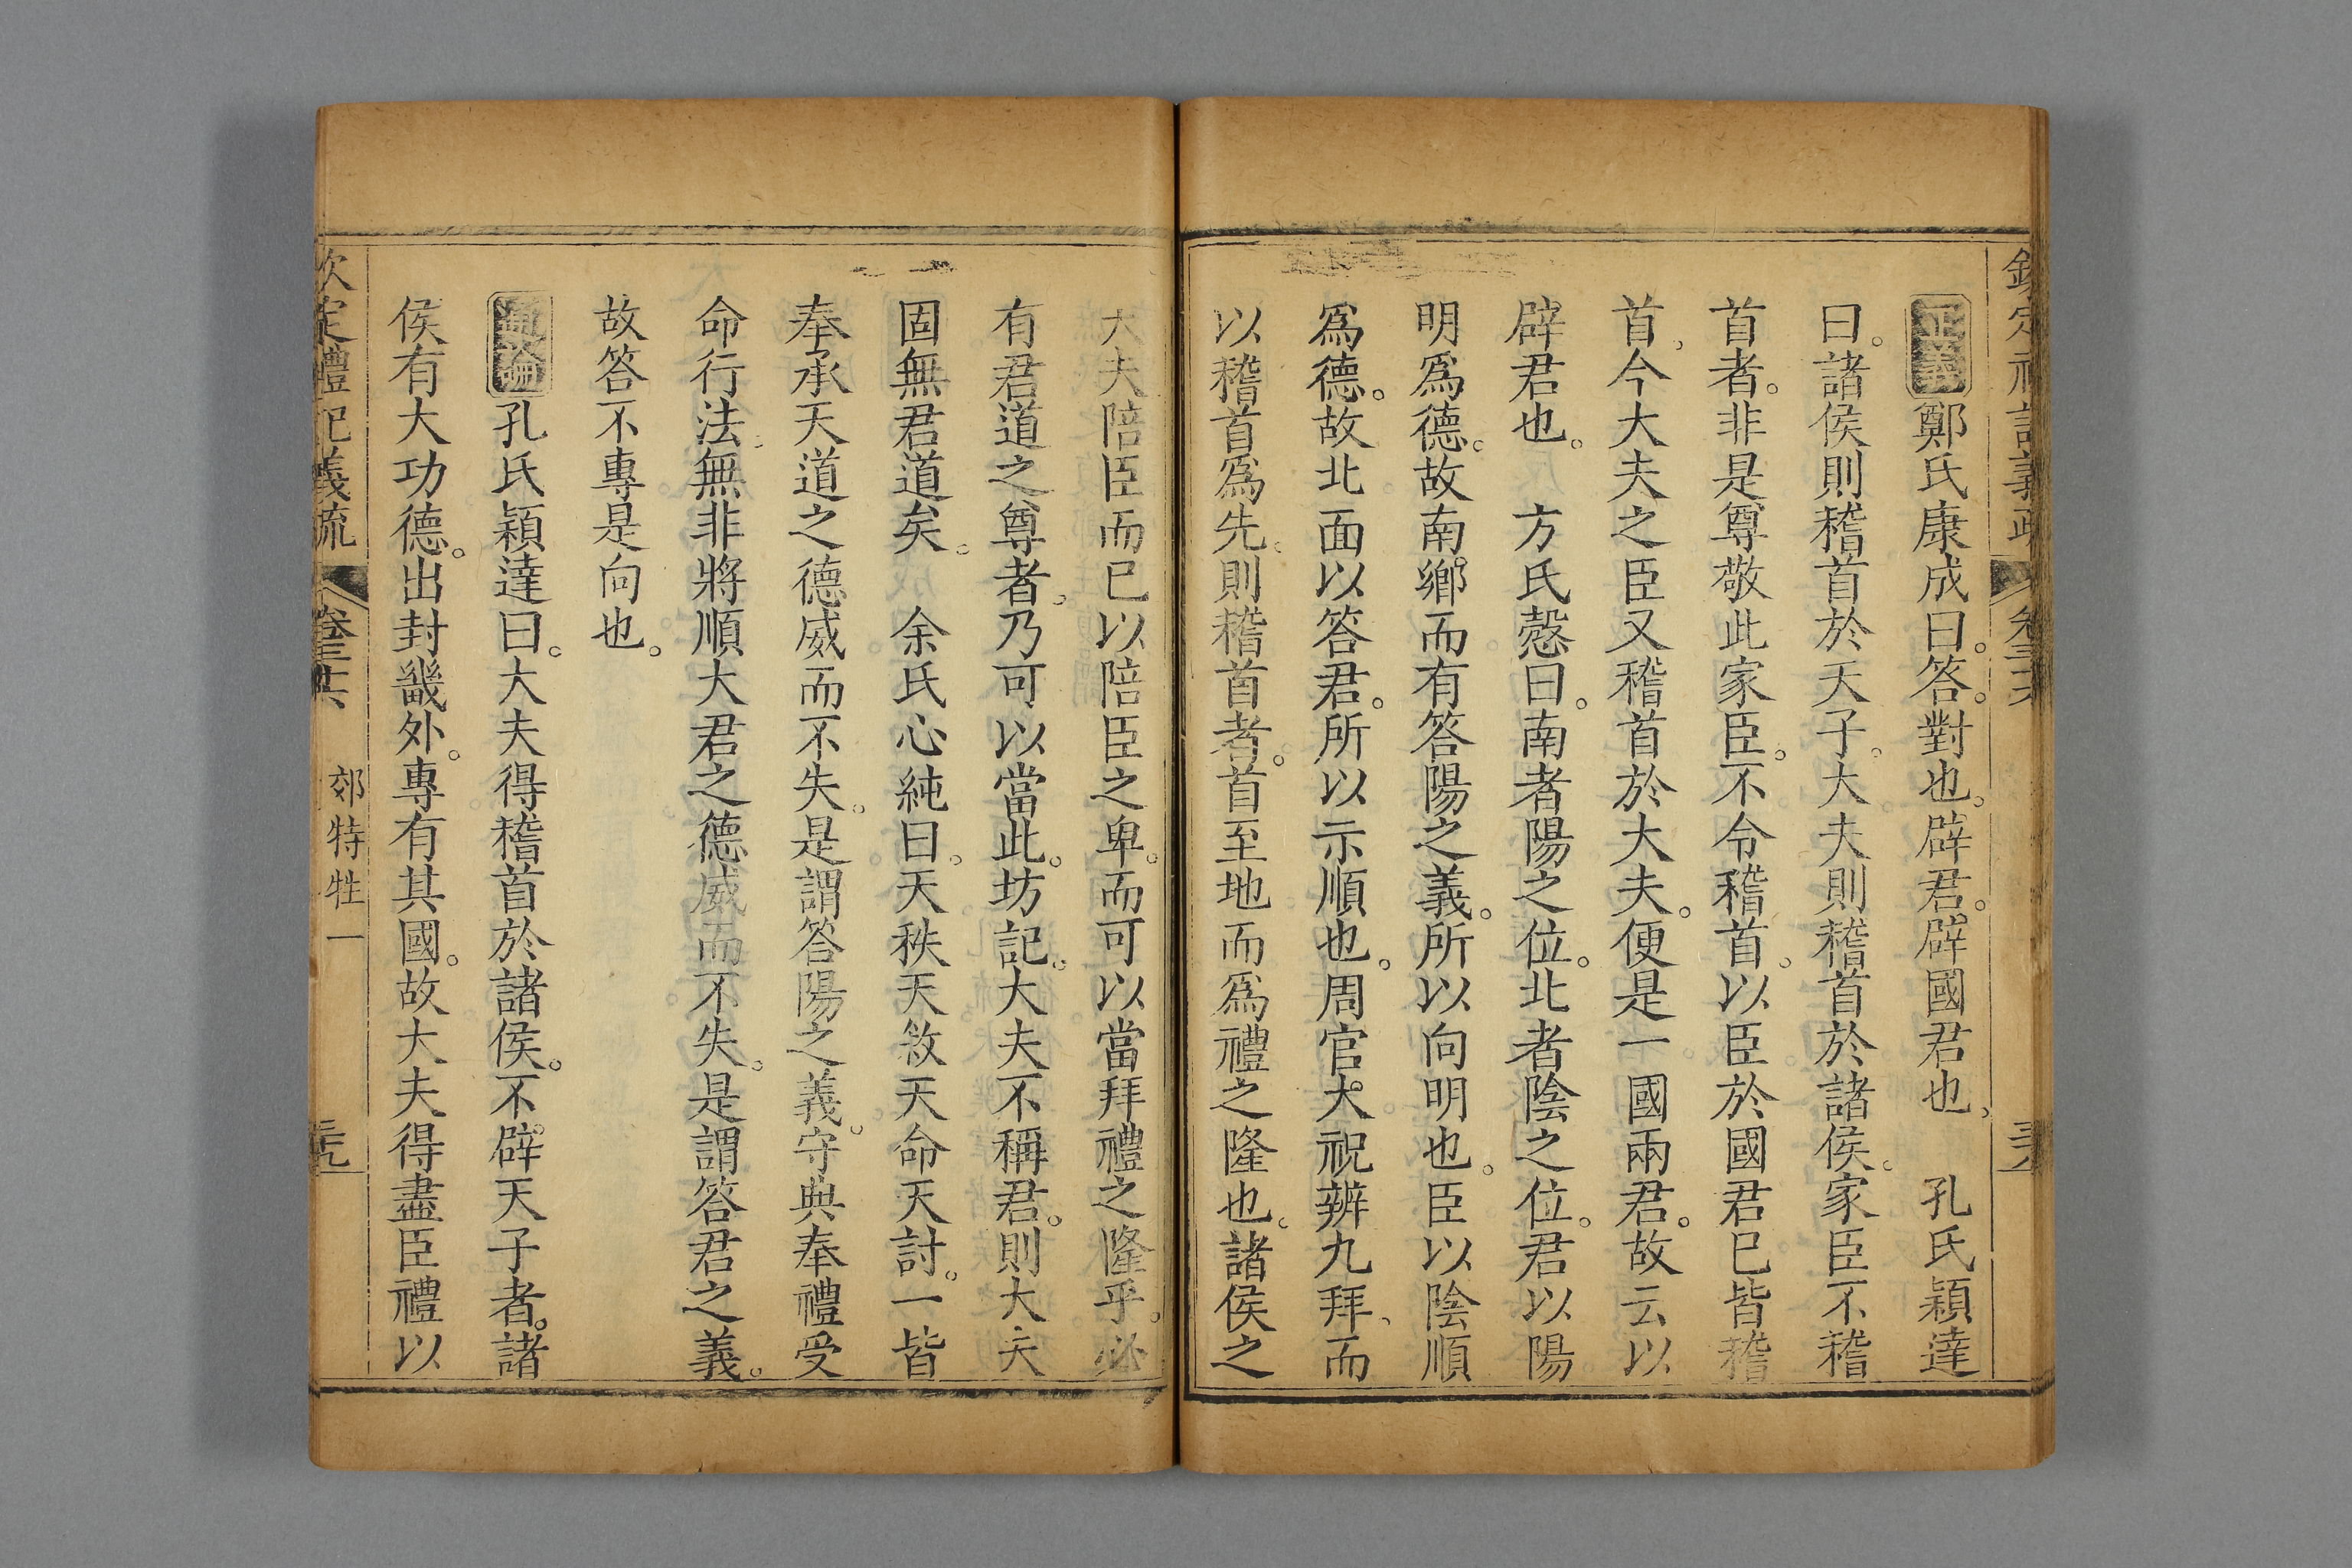 欽定禮記義疏 卷三十六
正義鄭氏康成曰。答。對也。辟君。辟國君也、 孔氏穎達
曰。諸侯則稽首於天子。大夫則稽首於諸侯。家臣不稽
首者。非是尊敬此家臣。不令稽首。以臣於國君已皆稽
首、今大夫之臣又稽首於大夫。便是一國兩君。故云以
辟君也。 方氏慤曰。南者陽之位。北者陰之位。君以陽
明爲德。故南鄉而有答陽之義。所以向明也。臣以陰順
爲德。故北面以答君。所以示順也。周官大祝辨九拜、而
以稽首爲先。則稽首者。首至地而爲禮之隆也。諸侯之
大夫陪臣而已以陪臣之卑。而可以當拜禮之隆乎。必
有君道之尊者、乃可以當此。坊記。大夫不稱君。則大夫
固無君道矣。 余氏心純曰。天秩天敘天命天討。一皆
奉承天道之德威而不失。是謂答陽之義。守典奉禮受
命行法、無非將順大君之德威而不失。是謂答君之義。
故答不專是向也。
通論孔氏穎達曰。大夫得稽首於諸侯。不辟天子者。諸
侯有大功德。出封畿外。專有其國。故大夫得盡臣禮以
欽定禮記義疏 卷三十六 郊特牲一 三九